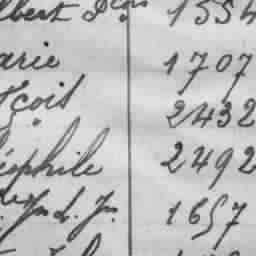 lbert 1554
arie 1707
çois 2432
éophile 2492
1657